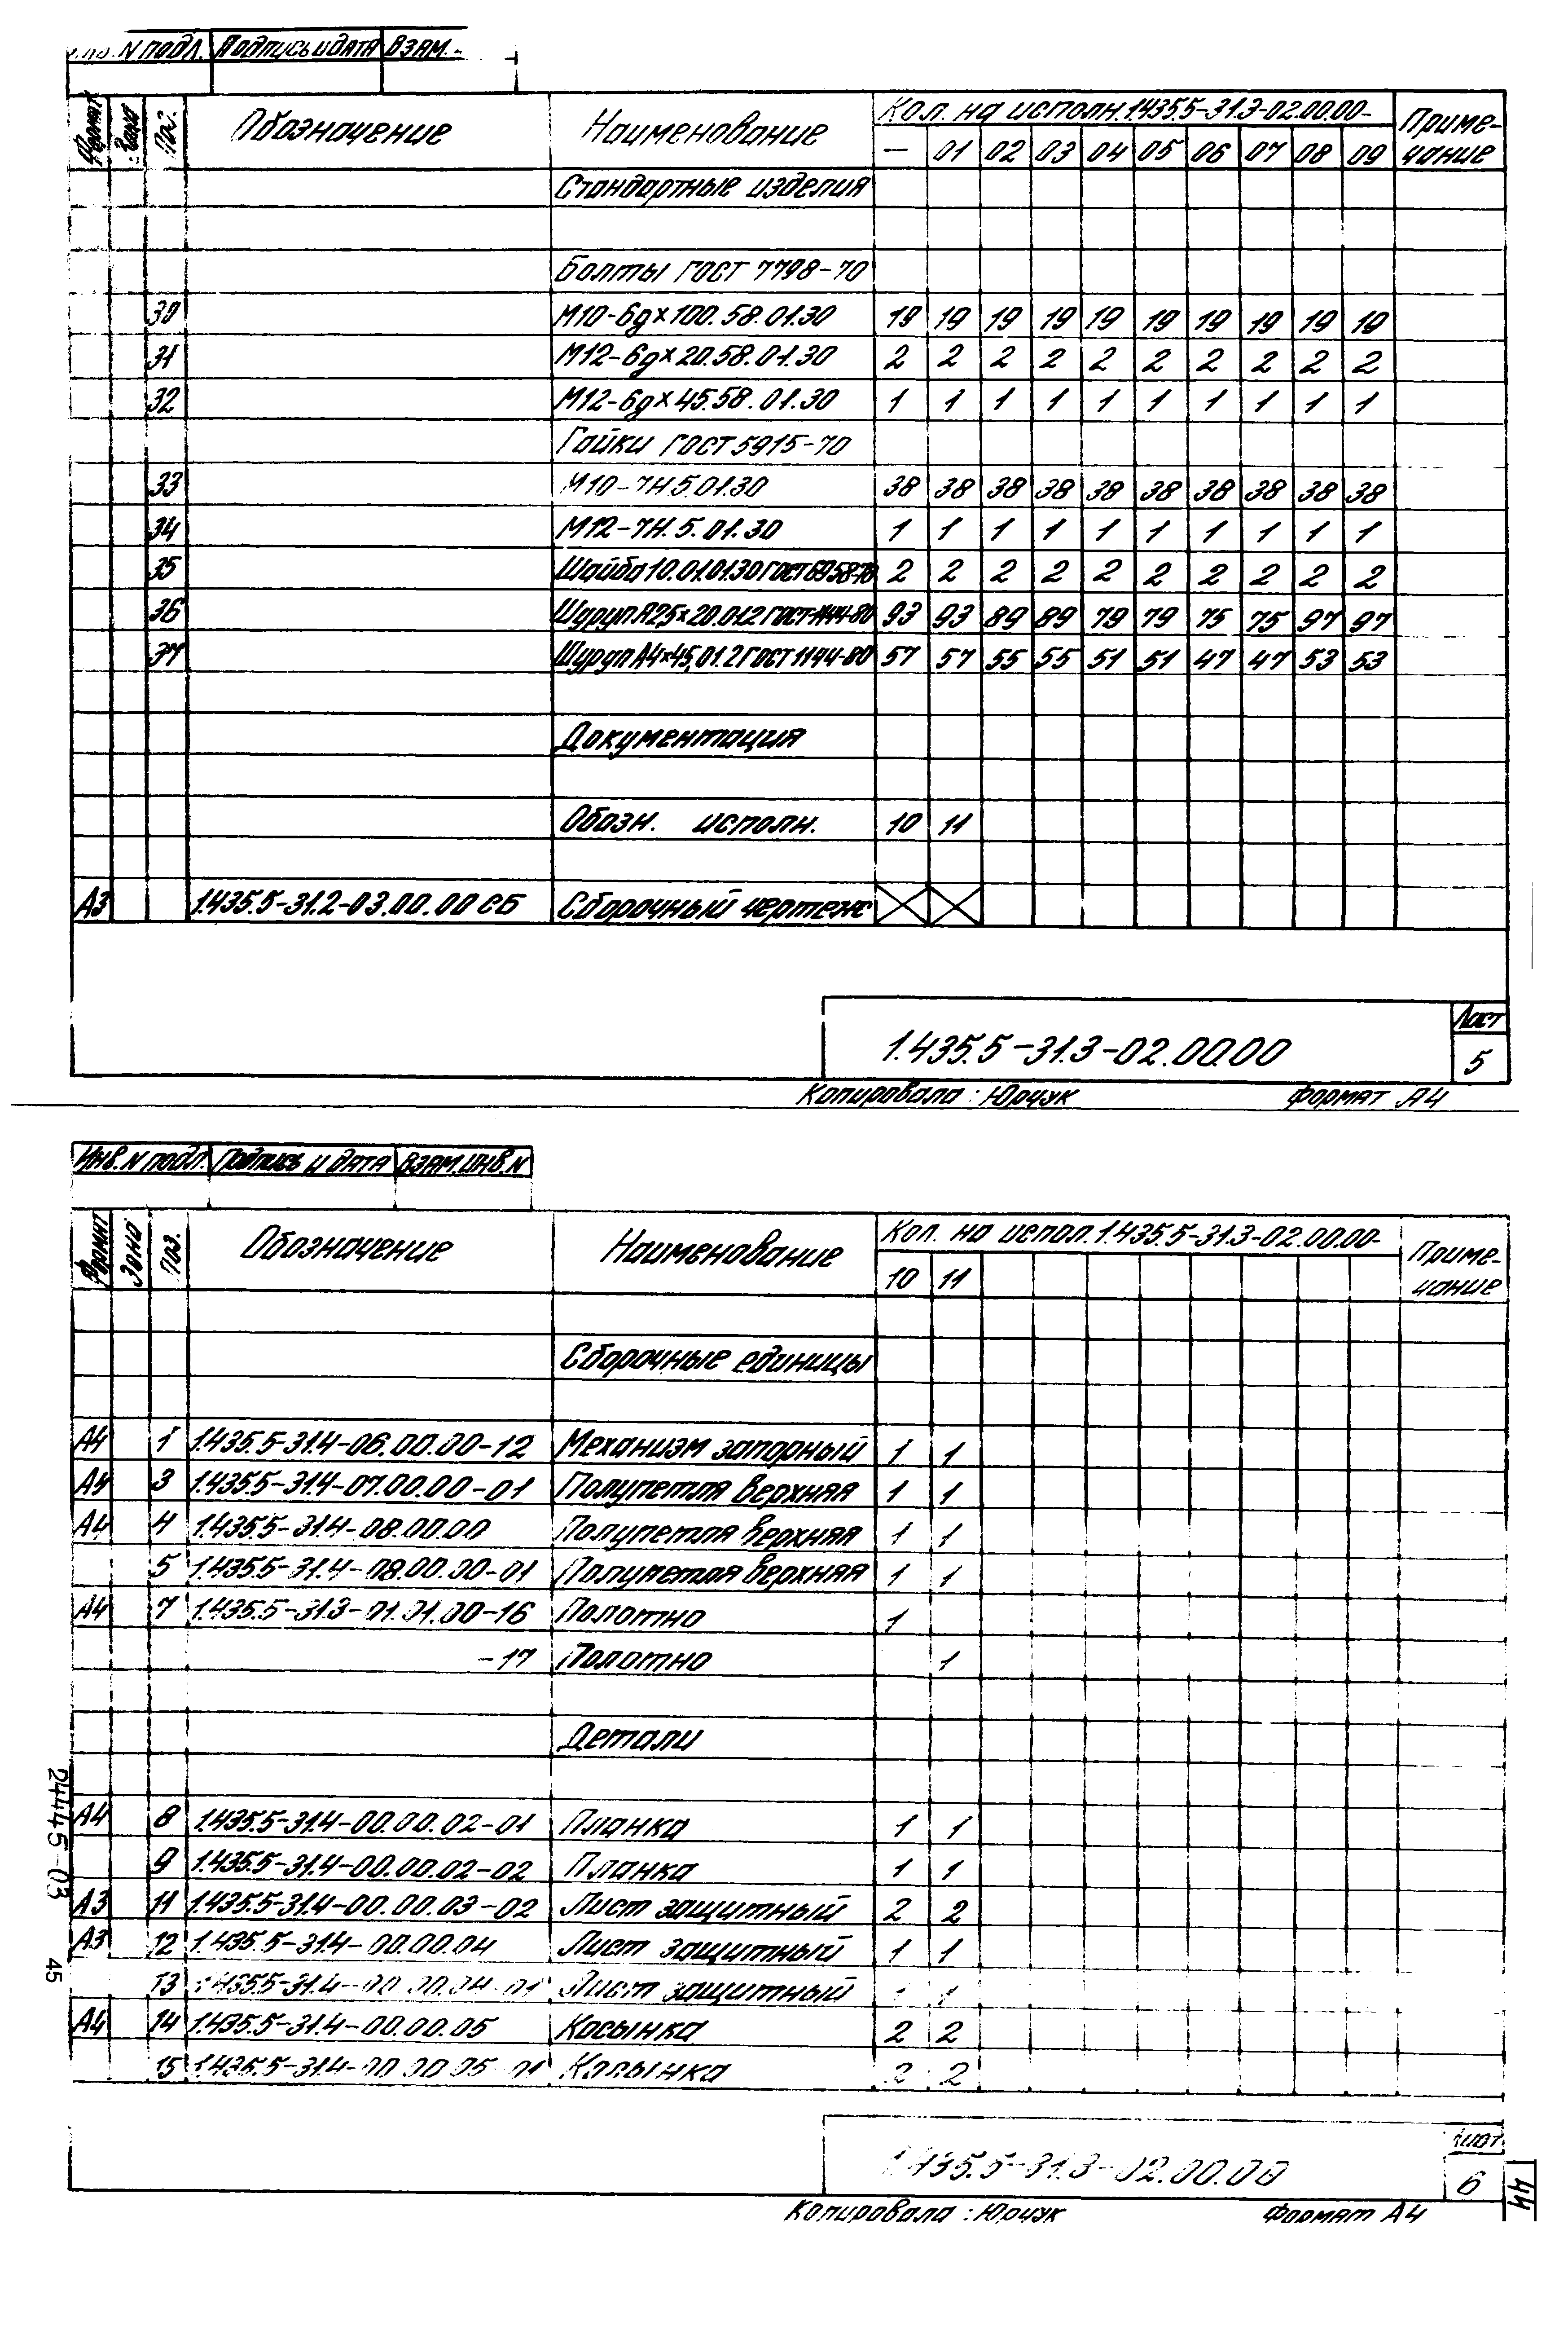 N подл. Подпись и дата Взам.
Формат Зона Поз. Обозначение Наименование Кол. на исполн. 1.435.5-31.3-02.00.00- Приме-
чание
— 01 02 03 04 05 06 07 08 09
Стандартные изделия
Болты ГОСТ 7798-70
30 М10-6g×100.58.01.30 19 19 19 19 19 19 19 19 19 19
31 М12-6g×20.58.01.30 2 2 2 2 2 2 2 2 2 2
32 М12-6g×45.58.01.30 1 1 1 1 1 1 1 1 1 1
Гайки ГОСТ 5915-70
33 М10-7Н.5.01.30 38 38 38 38 38 38 38 38 38 38
34 М12-7Н.5.01.30 1 1 1 1 1 1 1 1 1 1
35 Шайба 10.01.01.30 ГОСТ 6958-78 2 2 2 2 2 2 2 2 2 2
36 Шуруп А2,5×20.01.2 ГОСТ 1144-80 93 93 89 89 79 79 75 75 97 97
37 Шуруп А4×45.01.2 ГОСТ 1144-80 57 57 55 55 51 51 47 47 53 53
Документация
Обозн. исполн. 10 11
А3 1.435.5-31.2-03.00.00 СБ Сборочный чертеж
1.435.5-31.3-02.00.00
Лист
5
Копировала: Юрчук Формат А4
Инв. N подл. Подпись и дата Взам. инв. N
Формат Зона Поз. Обозначение Наименование Кол. на испол. 1.435.5-31.3-02.00.00- Приме-
чание
10 11
Сборочные единицы
А4 1 1.435.5-31.4-06.00.00-12 Механизм запорный 1 1
А4 3 1.435.5-31.4-07.00.00-01 Полупетля верхняя 1 1
А4 4 1.435.5-31.4-08.00.00 Полупетля верхняя 1 1
5 1.435.5-31.4-08.00.00-01 Полупетля верхняя 1 1
А4 7 1.435.5-31.3-01.01.00-16 Полотно 1
-17 Полотно 1
Детали
А4 8 1.435.5-31.4-00.00.02-01 Планка 1 1
9 1.435.5-31.4-00.00.02-02 Планка 1 1
А3 11 1.435.5-31.4-00.00.03-02 Лист защитный 2 2
А3 12 1.435.5-31.4-00.00.04 Лист защитный 1 1
13 1.435.5-31.4-00.00.04-01 Лист защитный 1 1
А4 14 1.435.5-31.4-00.00.05 Косынка 2 2
15 1.435.5-31.4-00.00.05-01 Косынка 2 2
1.435.5-31.3-02.00.00
Лист
6
Копировала: Юрчук Формат А4
24445-03 45
44